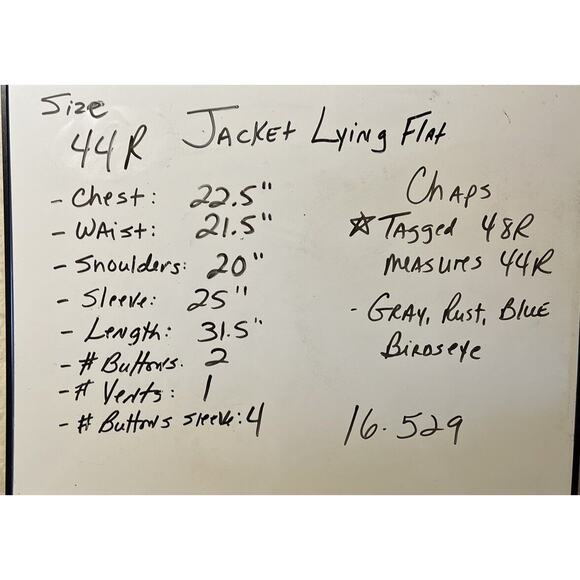 Size
44R Jacket Lying Flat
- Chest: 22.5"
- Waist: 21.5"
- Shoulders: 20"
- Sleeve: 25"
- Length: 31.5"
- # Buttons: 2
- # Vents: 1
- # Buttons sleeve: 4
Chaps
☆ Tagged 48R
measures 44R
- Gray, Rust, Blue
Birdseye
16.529